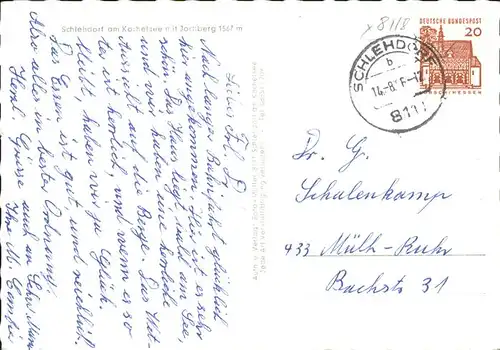 Schlehdorf am Kochelsee mit Jochberg 1567 m
Liebes Frl. D.
Nach langer Bahnfahrt glücklich
hier angekommen. Hier ist es sehr
schön. Das Haus liegt nah am See,
und wir haben eine herrliche
Aussicht auf die Berge. Das Wet-
ter ist herrlich, und wenn es so
bleibt, haben wir ja Glück.
Das Essen ist gut und reichlich.
Also alles in bester Ordnung.
Herzl. Grüsse auch an
Ihre M.
x 8118
DEUTSCHE BUNDESPOST
20
SCHLEHDORF
b
8111
Dr. G.
Schalenkamp
433 Mülh-Ruhr
Bachstr 31